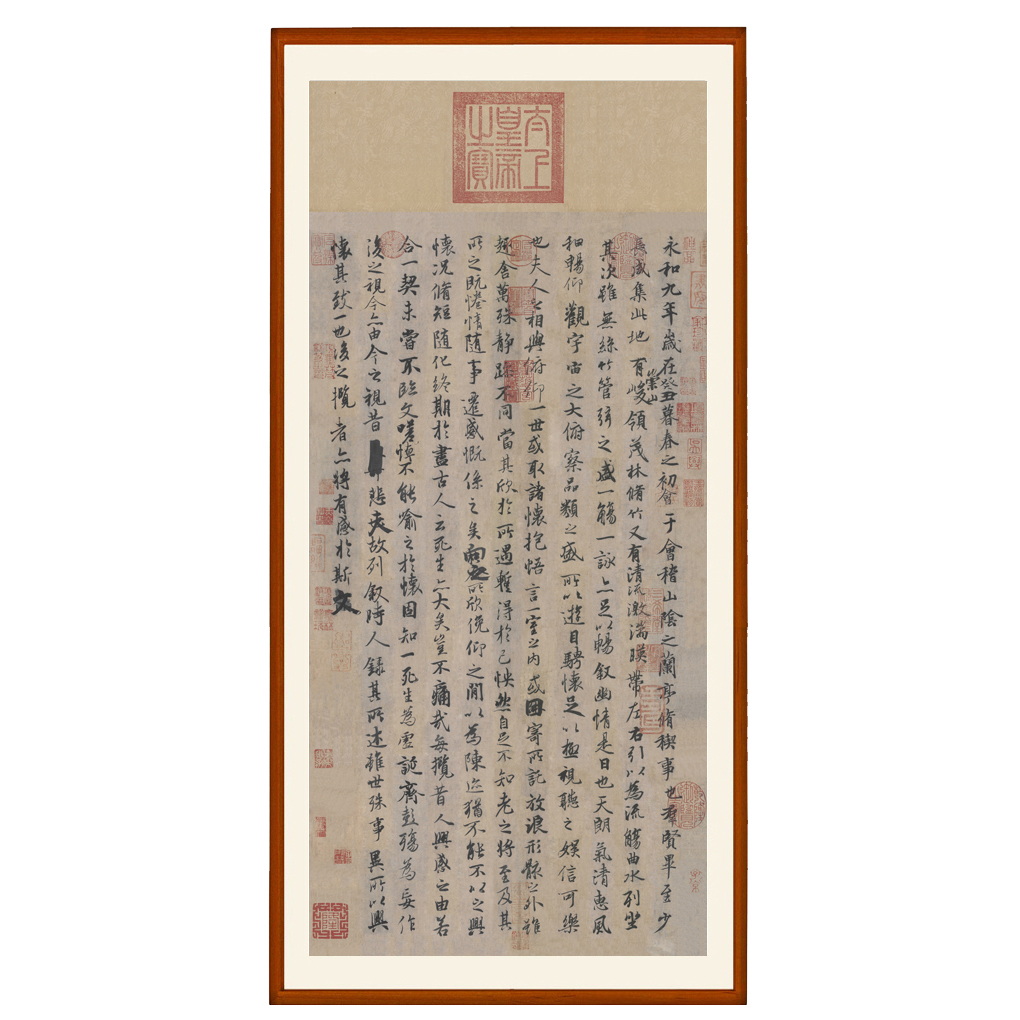 太上皇帝之寶
永和九年歲在癸丑暮春之初會于會稽山陰之蘭亭脩稧事也羣賢畢至少
長咸集此地有崇山峻領茂林脩竹又有清流激湍暎帶左右引以為流觴曲水列坐
其次雖無絲竹管弦之盛一觴一詠亦足以暢叙幽情是日也天朗氣清惠風
和暢仰觀宇宙之大俯察品類之盛所以遊目騁懷足以極視聽之娛信可樂
也夫人之相與俯仰一世或取諸懷抱悟言一室之內或因寄所託放浪形骸之外雖
趣舍萬殊静躁不同當其欣於所遇暫得於己怏然自足不知老之將至及其
所之既惓情隨事遷感慨係之矣向之所欣俛仰之閒以為陳迹猶不能不以之興
懷況脩短隨化終期於盡古人云死生亦大矣豈不痛哉每攬昔人興感之由若
合一契未嘗不臨文嗟悼不能喻之於懷固知一死生為虛誕齊彭殤為妄作
後之視今亦由今之視昔悲夫故列叙時人錄其所述雖世殊事異所以興
懷其致一也後之攬者亦將有感於斯文